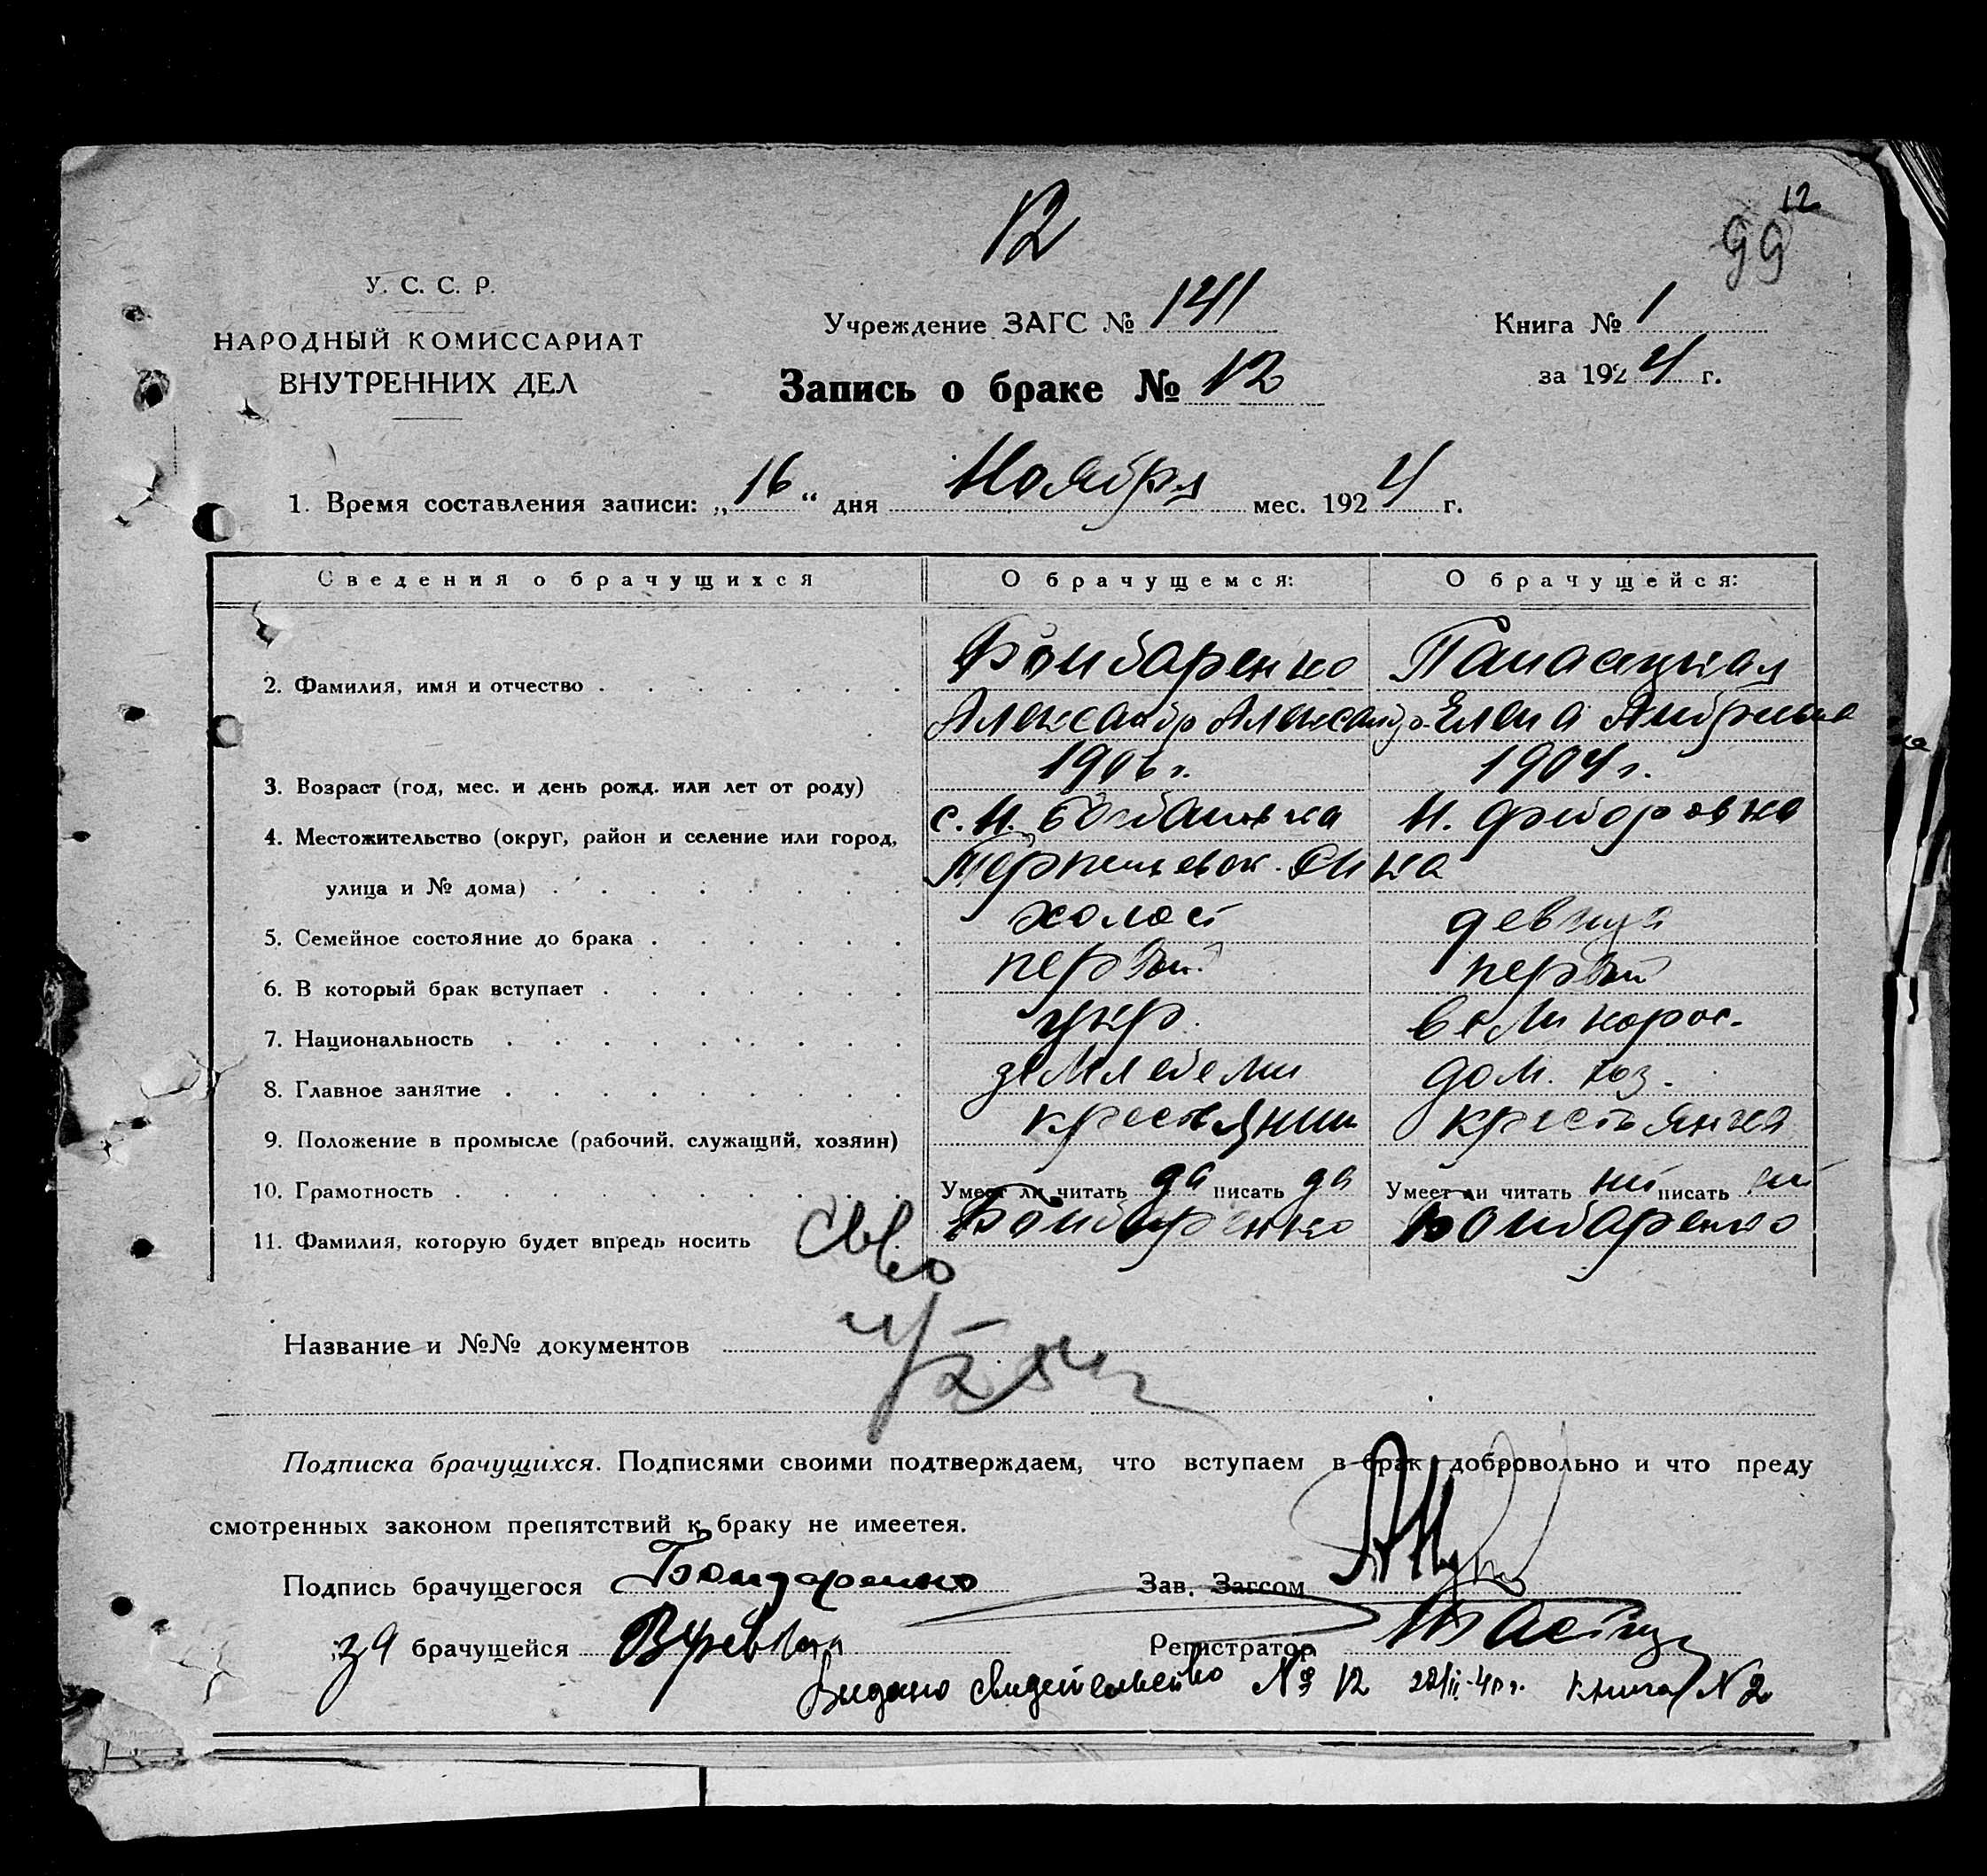 12
12
99
У. С. С. Р.
НАРОДНЫЙ КОМИССАРИАТ
ВНУТРЕННИХ ДЕЛ
Учреждение ЗАГС № 141
Книга № 1
Запись о браке № 12
за 1924 г.
1. Время составления записи: „16“ дня Ноября мес. 1924 г.
Сведения о брачущихся О брачущемся: О брачущейся:
2. Фамилия, имя и отчество Бондаренко
Александр Александр. Елена
3. Возраст (год, мес. и день рожд. или лет от роду) 1906 г. 1904 г.
4. Местожительство (округ, район и селение или город, с. Н. Н. Федоровка
улица и № дома)
5. Семейное состояние до брака холост девица
6. В который брак вступает первый первый
7. Национальность укр. великорос.
8. Главное занятие дом. хоз.
9. Положение в промысле (рабочий, служащий, хозяин) крестьянин крестьянка
10. Грамотность Умеет ли читать да писать да Умеет ли читать ни писать ни
11. Фамилия, которую будет впредь носить Бондаренко Бондаренко
Название и №№ документов
Подписка брачущихся. Подписями своими подтверждаем, что вступаем в брак добровольно и что преду
смотренных законом препятствий к браку не имеетея.
Подпись брачущегося Бондаренко Зав. Загсом
за брачущейся Регистратор
Видано свидетельство № 12 Книга № 2